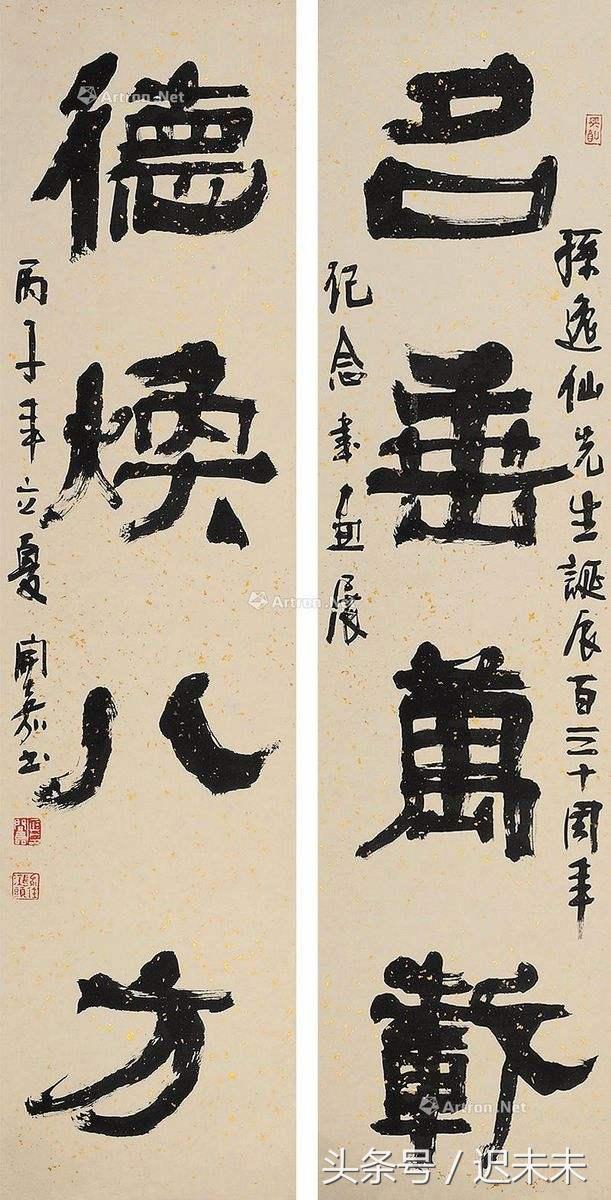 孫逸仙先生誕辰百三十周年
名垂萬載
紀念書画展
德煥八方
丙子年立夏 開嘉书
Artron.Net
Artron.Net
Artron.Net
Artron.Net
头条号 / 迟未未